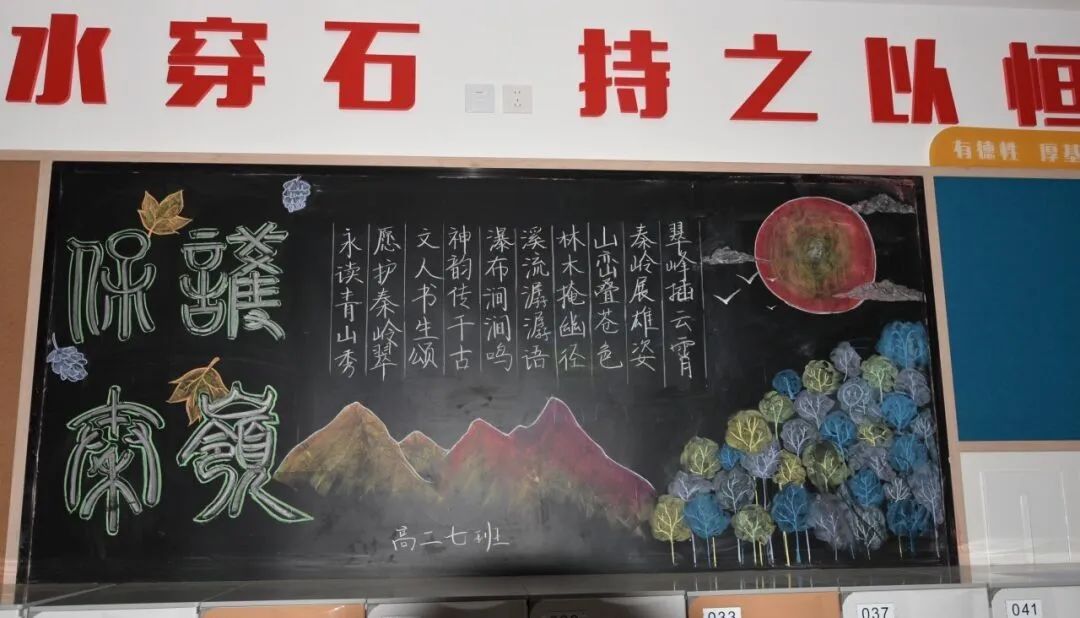 水穿石 持之以恒
有德性 厚基
保護
秦嶺
翠峰插云霄
秦岭展雄姿
山峦叠苍色
林木掩幽径
溪流潺潺语
瀑布涧涧鸣
神韵传千古
文人书生颂
愿护秦岭翠
永读青山秀
高二七班
033
037
041